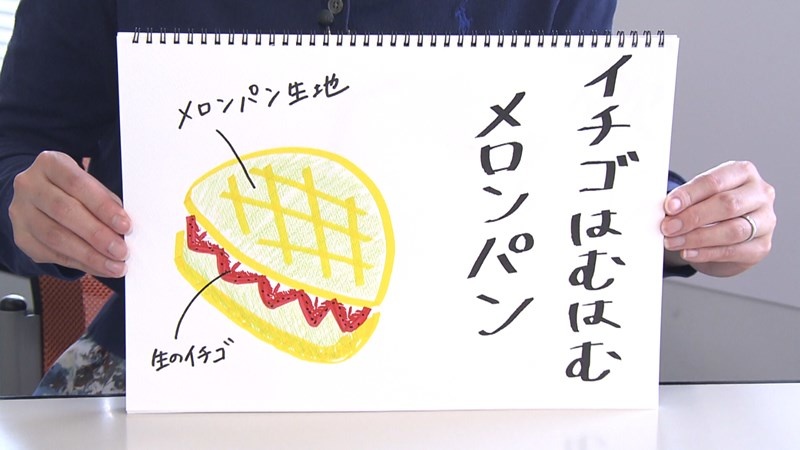 イチゴはむはむ
メロンパン
メロンパン生地
生のイチゴ